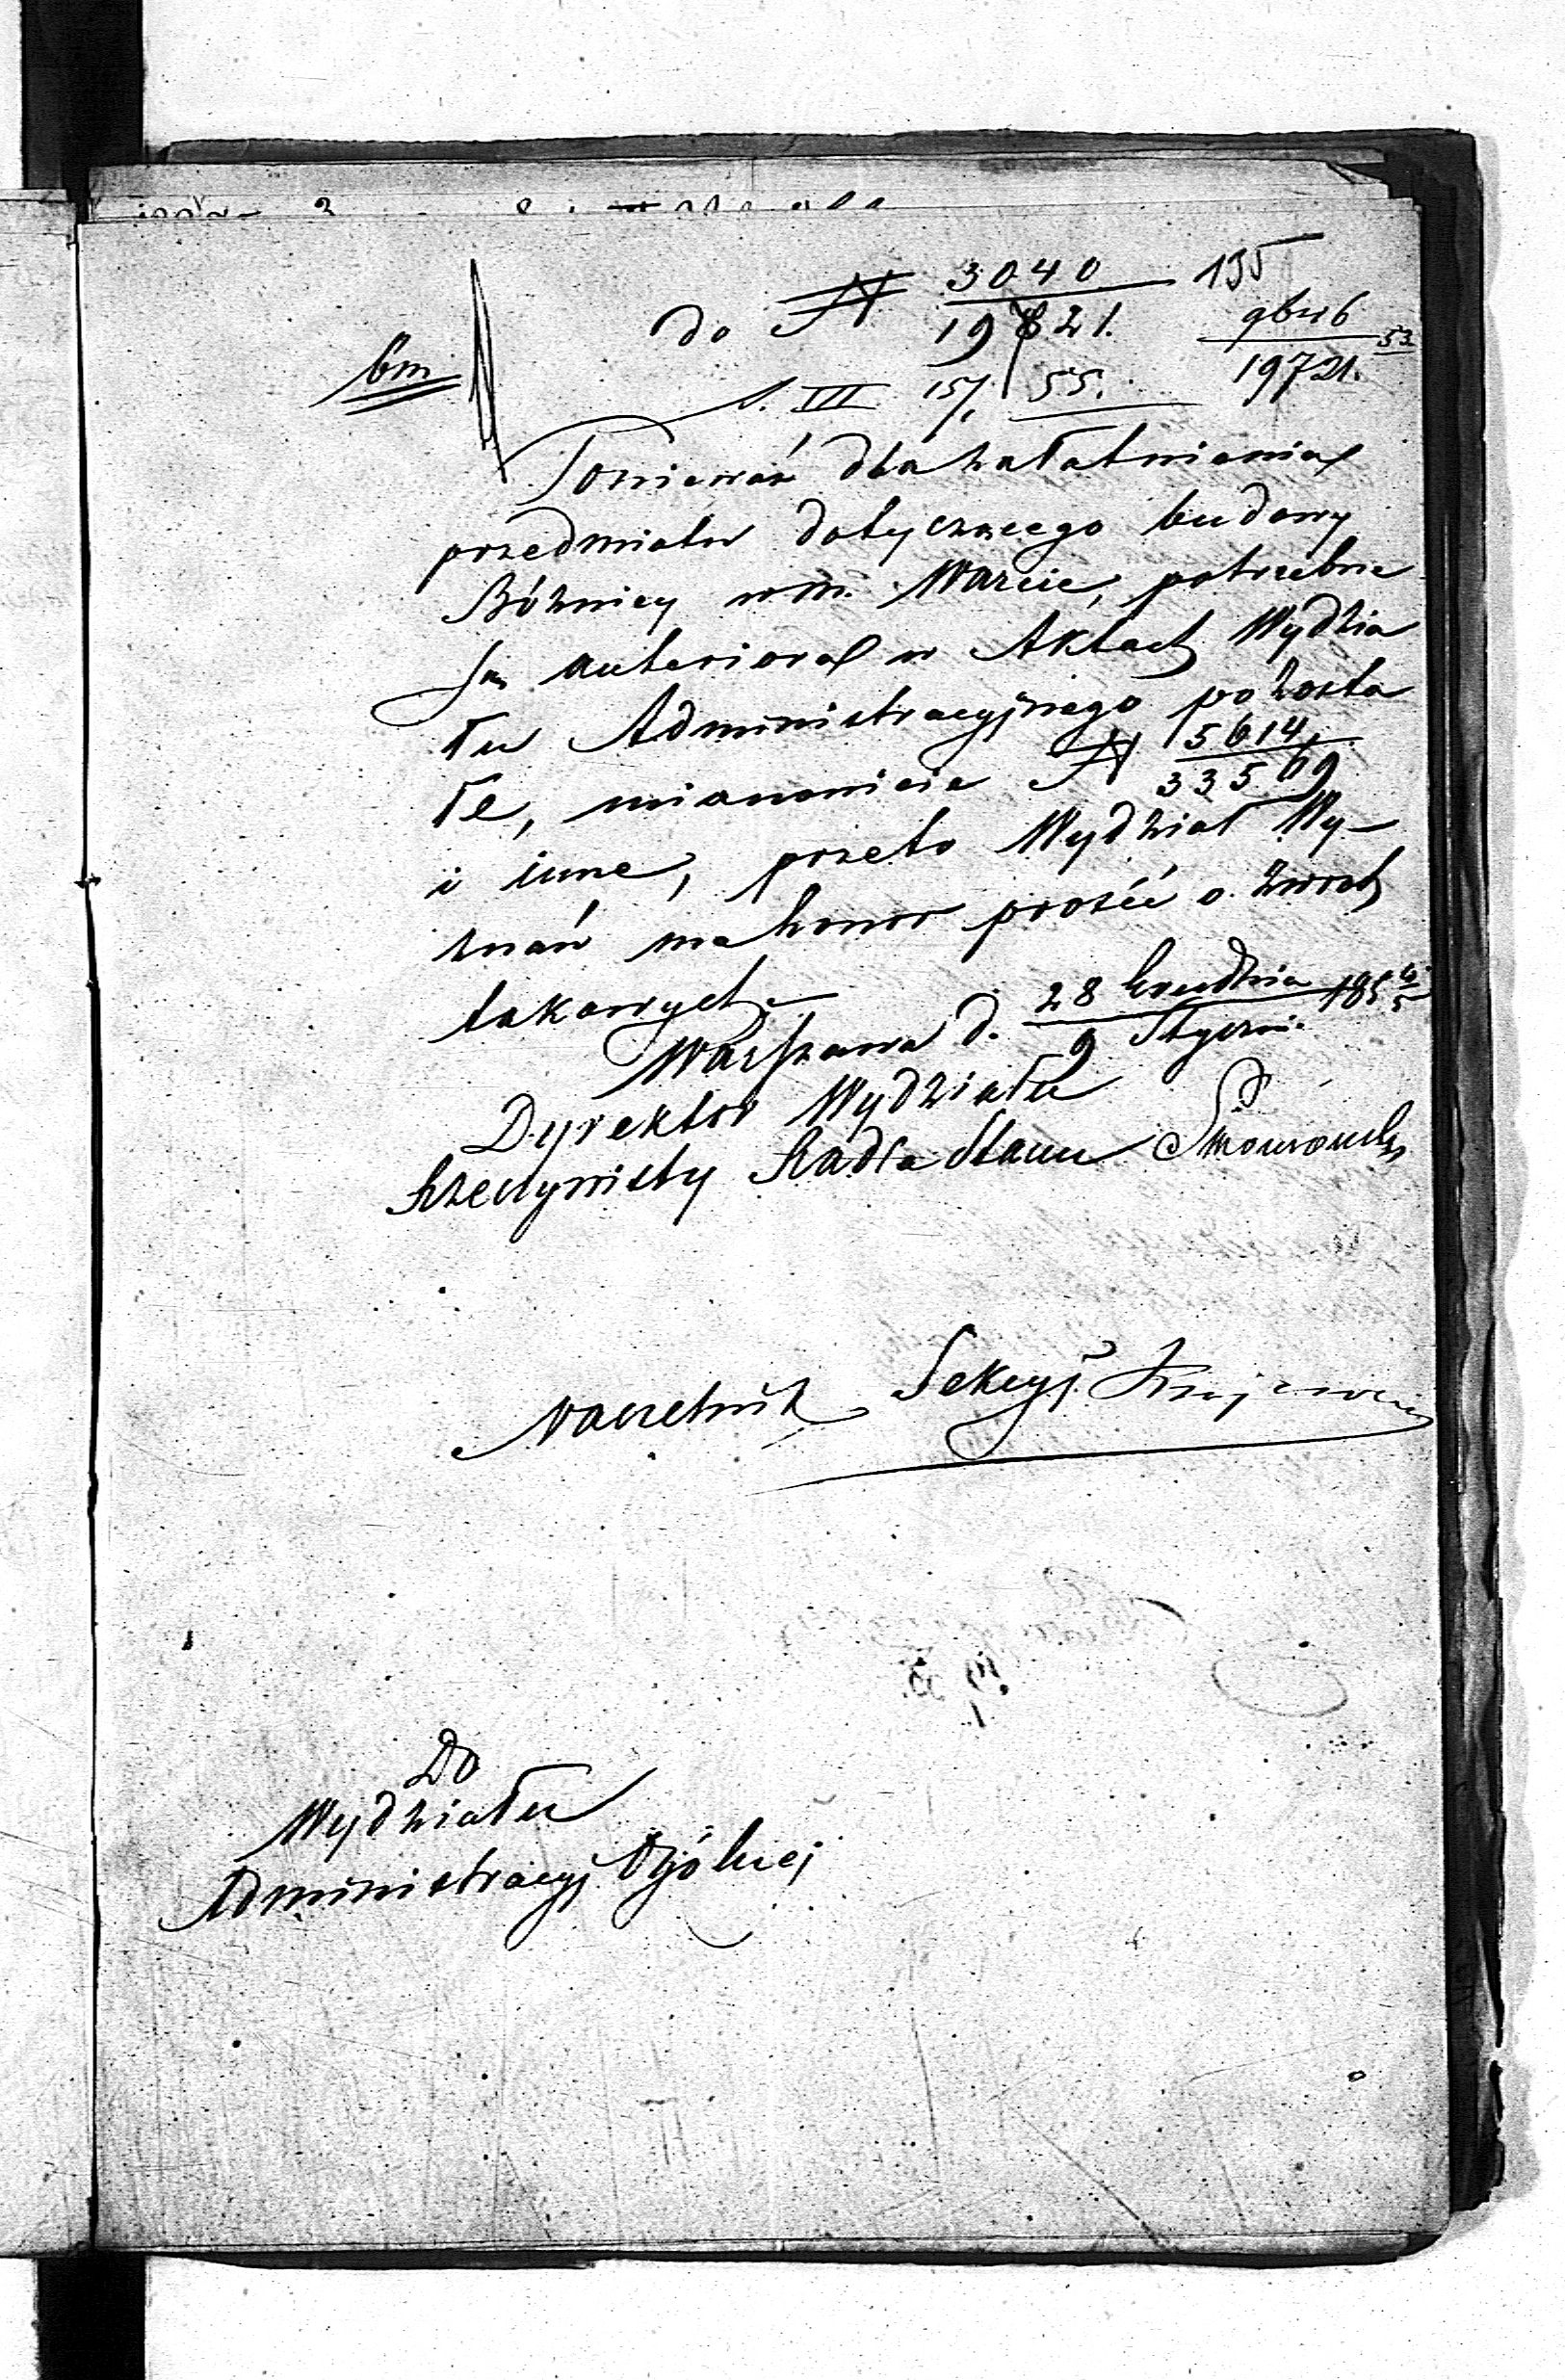 do N 3040 / 19821. 195
9646 / 19721. 53
bm
S. III 15/1 55.
Ponieważ dla załatwienia
przedmiotu dotyczącego budowy
Bóżnicy w m. Warcie, potrzebne
są anteriora w Aktach Wydzia
łu Administracyjnego pozosta
łe, mianowicie N 5614 / 33569
i inne, przeto Wydział Wy-
znań ma honor prosić o zwrot
takowych.
Warszawa d. 28 Grudnia / 9 Styczni. 185 4/5
Dyrektor Wydziału
Rzeczywisty Radca Stanu
Naczelnik Sekcyi
Do
Wydziału
Administracyj Ogólnej